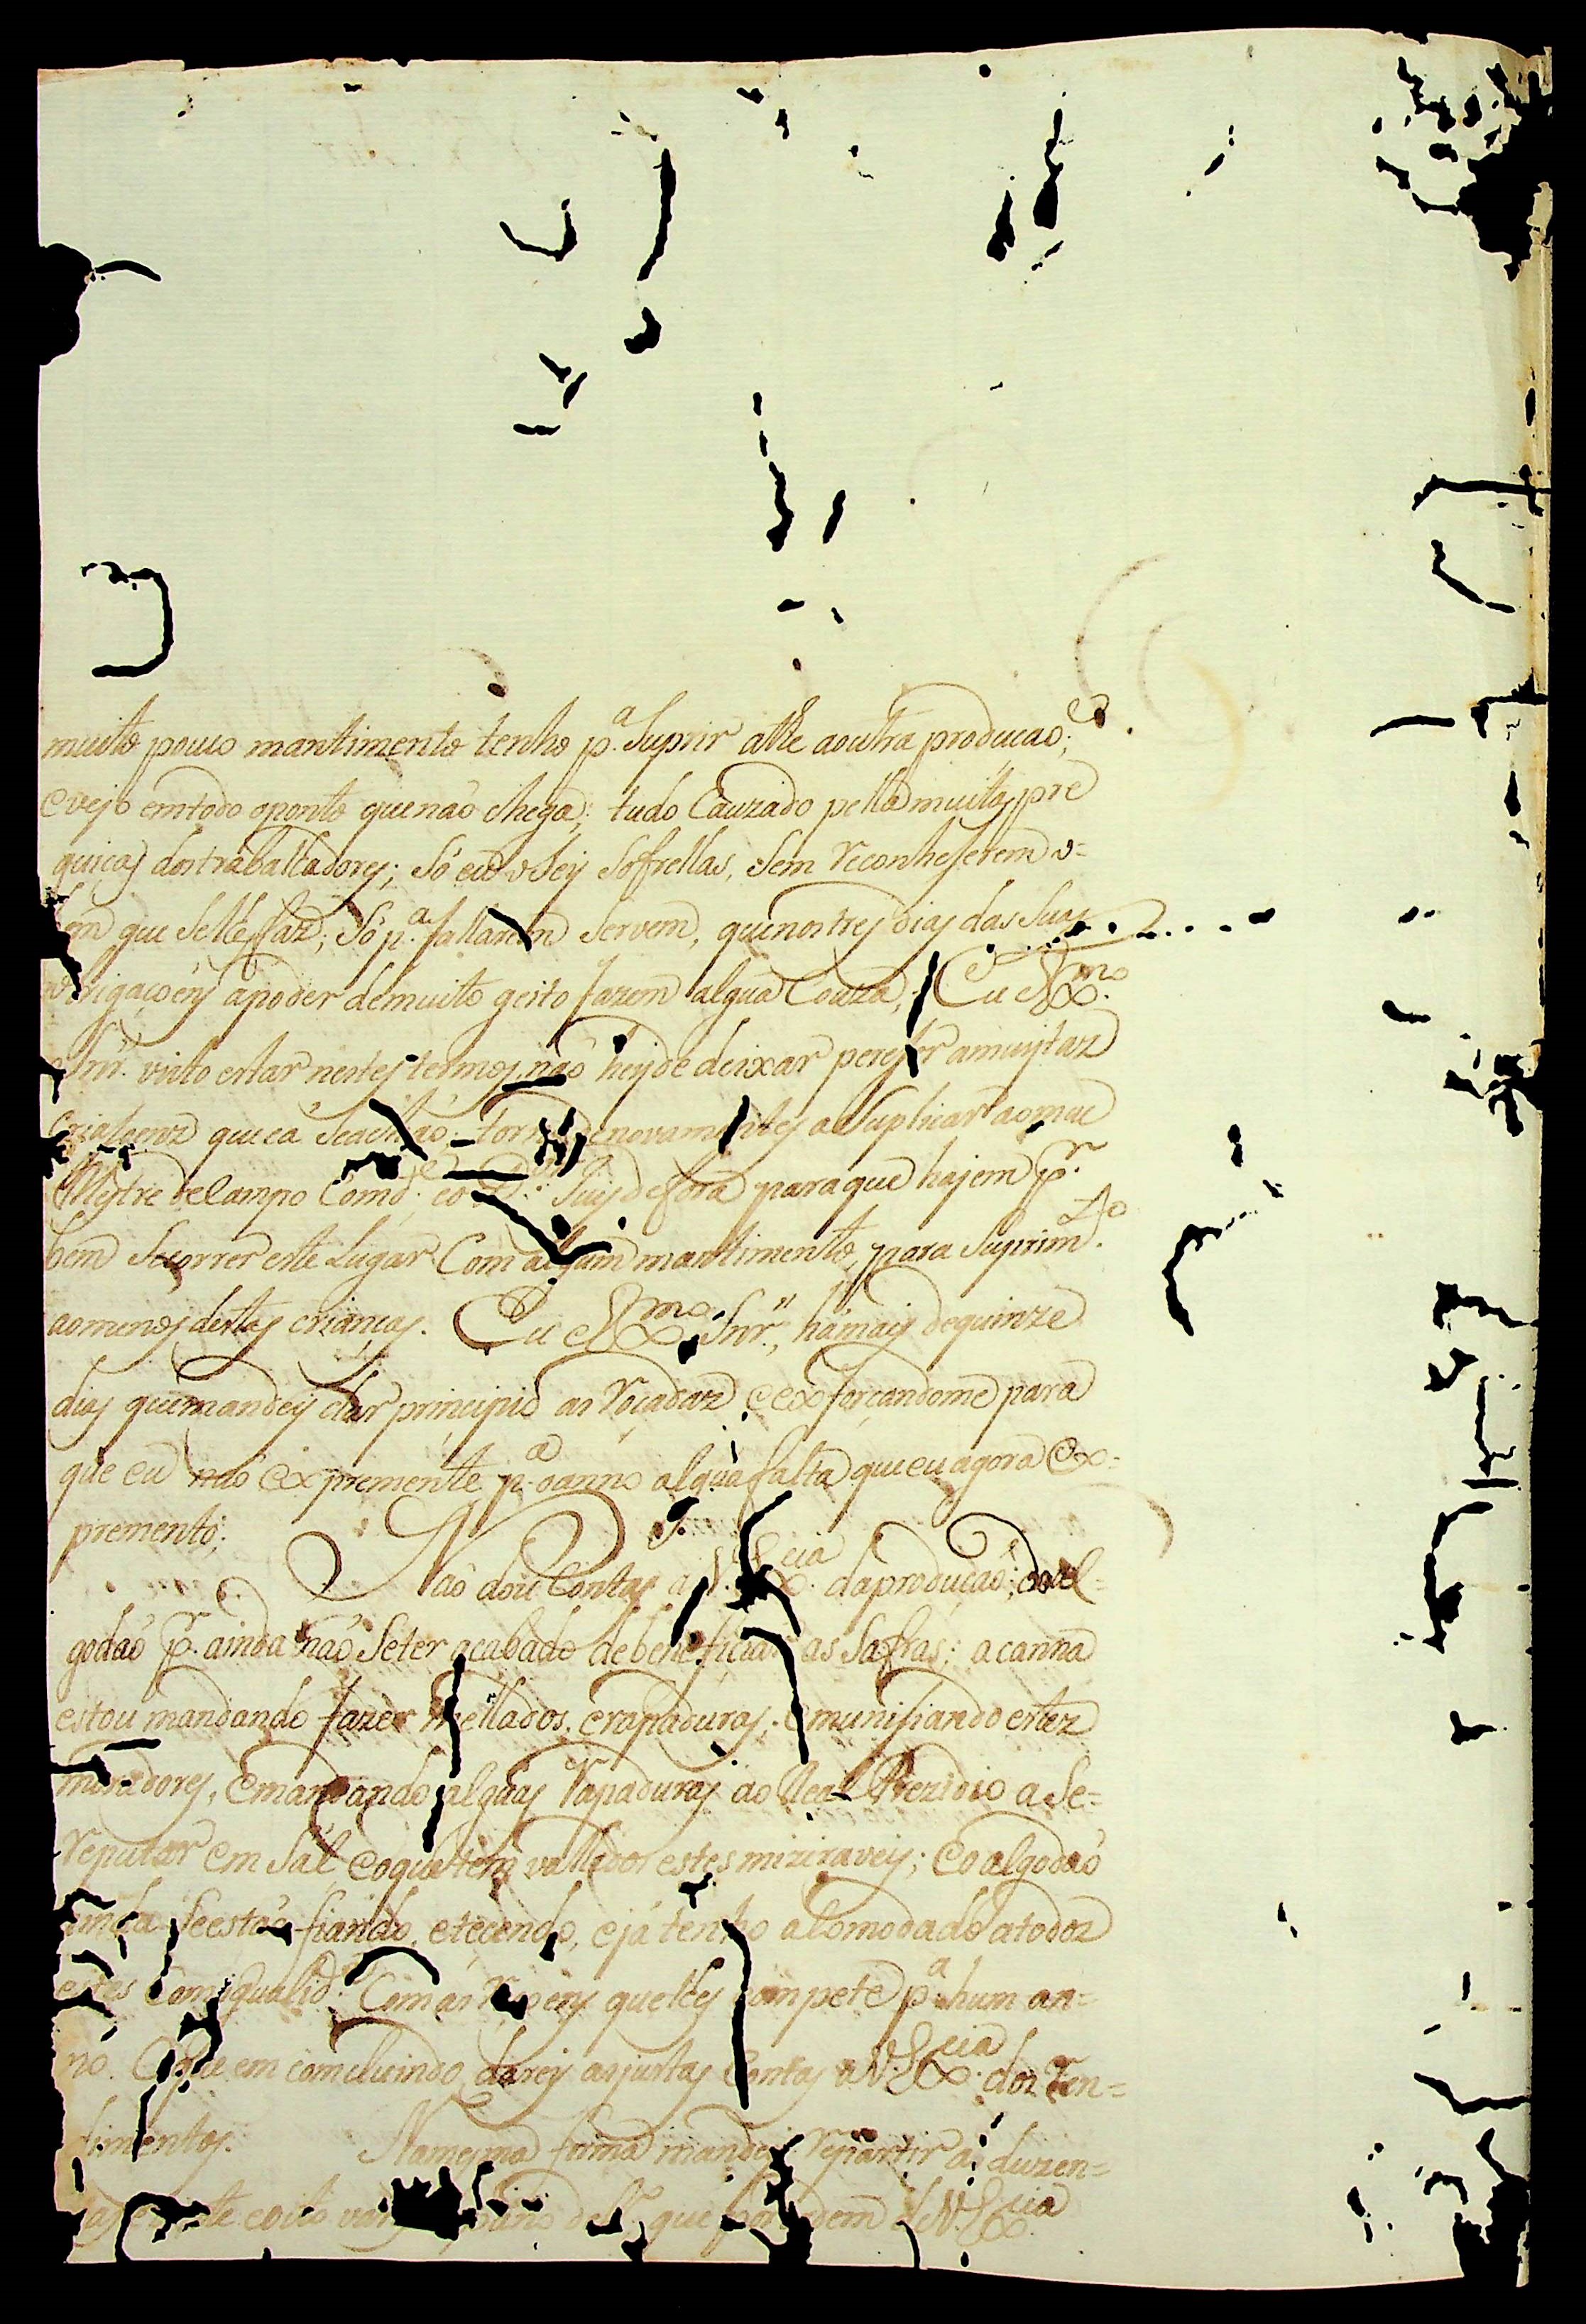 muito pouco mantimento tenho p.ª Suprir athe aoutra producaõ;
e vejo emtodo oponto quenaõ chega; tudo Cauzado pella muitas pre
guiças dos trabalhadores; Só eu o Sey Sofrellas, Sem reconheserem o=
bem que Selhes faz; Só p.ª fallarem Servem, quenos tres dias das Suas
obrigaçoéns apoder demuito geito fazem algúa Couza; Eu Ex.mo
Snr. visto estar nestes termos naõ heyde deixar pereser amuytaz
criançaz que cá Seachaõ; torno denovamentes a Suplicar aomeu
Mestre de Campo Com.de eo D.or Juis defora para que hajem p.r
bem Socorrer este Lugar Com algum mantimento, para Suprim.to
aomenos destas crianças. Eu Ex.mo Snr., hámais dequinze
dias que mandey dar principio as roçadaz e exforçandome para
que eu naõ expremente p.ª oanno algúa falta que eu agora ex=
premento;
Naõ dou Contas a V. Ex.cia daproducaõ; do al=
godaõ p.r ainda naõ Seter acabado de beneficiar as Safras; acanna
estou mandando fazer mellados, erapaduras; emunisiando estez
moradores, emandando algúas rapaduras ao Real Prezidio a Se=
reputar em Sál, eoque tem vallido estes miziraveis; Eo algodaõ
ainda Seestá fiando, etecendo, ejá tenho acomodado atodoz
estes Comigualid.e Com as rasoens que lhes Compete p.ª hum an=
no. E que em comcluindo darey asjustas Contas a V. Ex.cia dos ren=
dimentos. Namesma forma mandey repartir as duzen=
tas e vinte eoito varas pano de que por ordem d V. Ex.cia